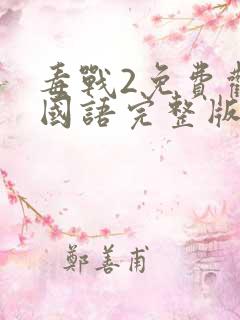 毒戰2免費
國語完整版
鄭善甫